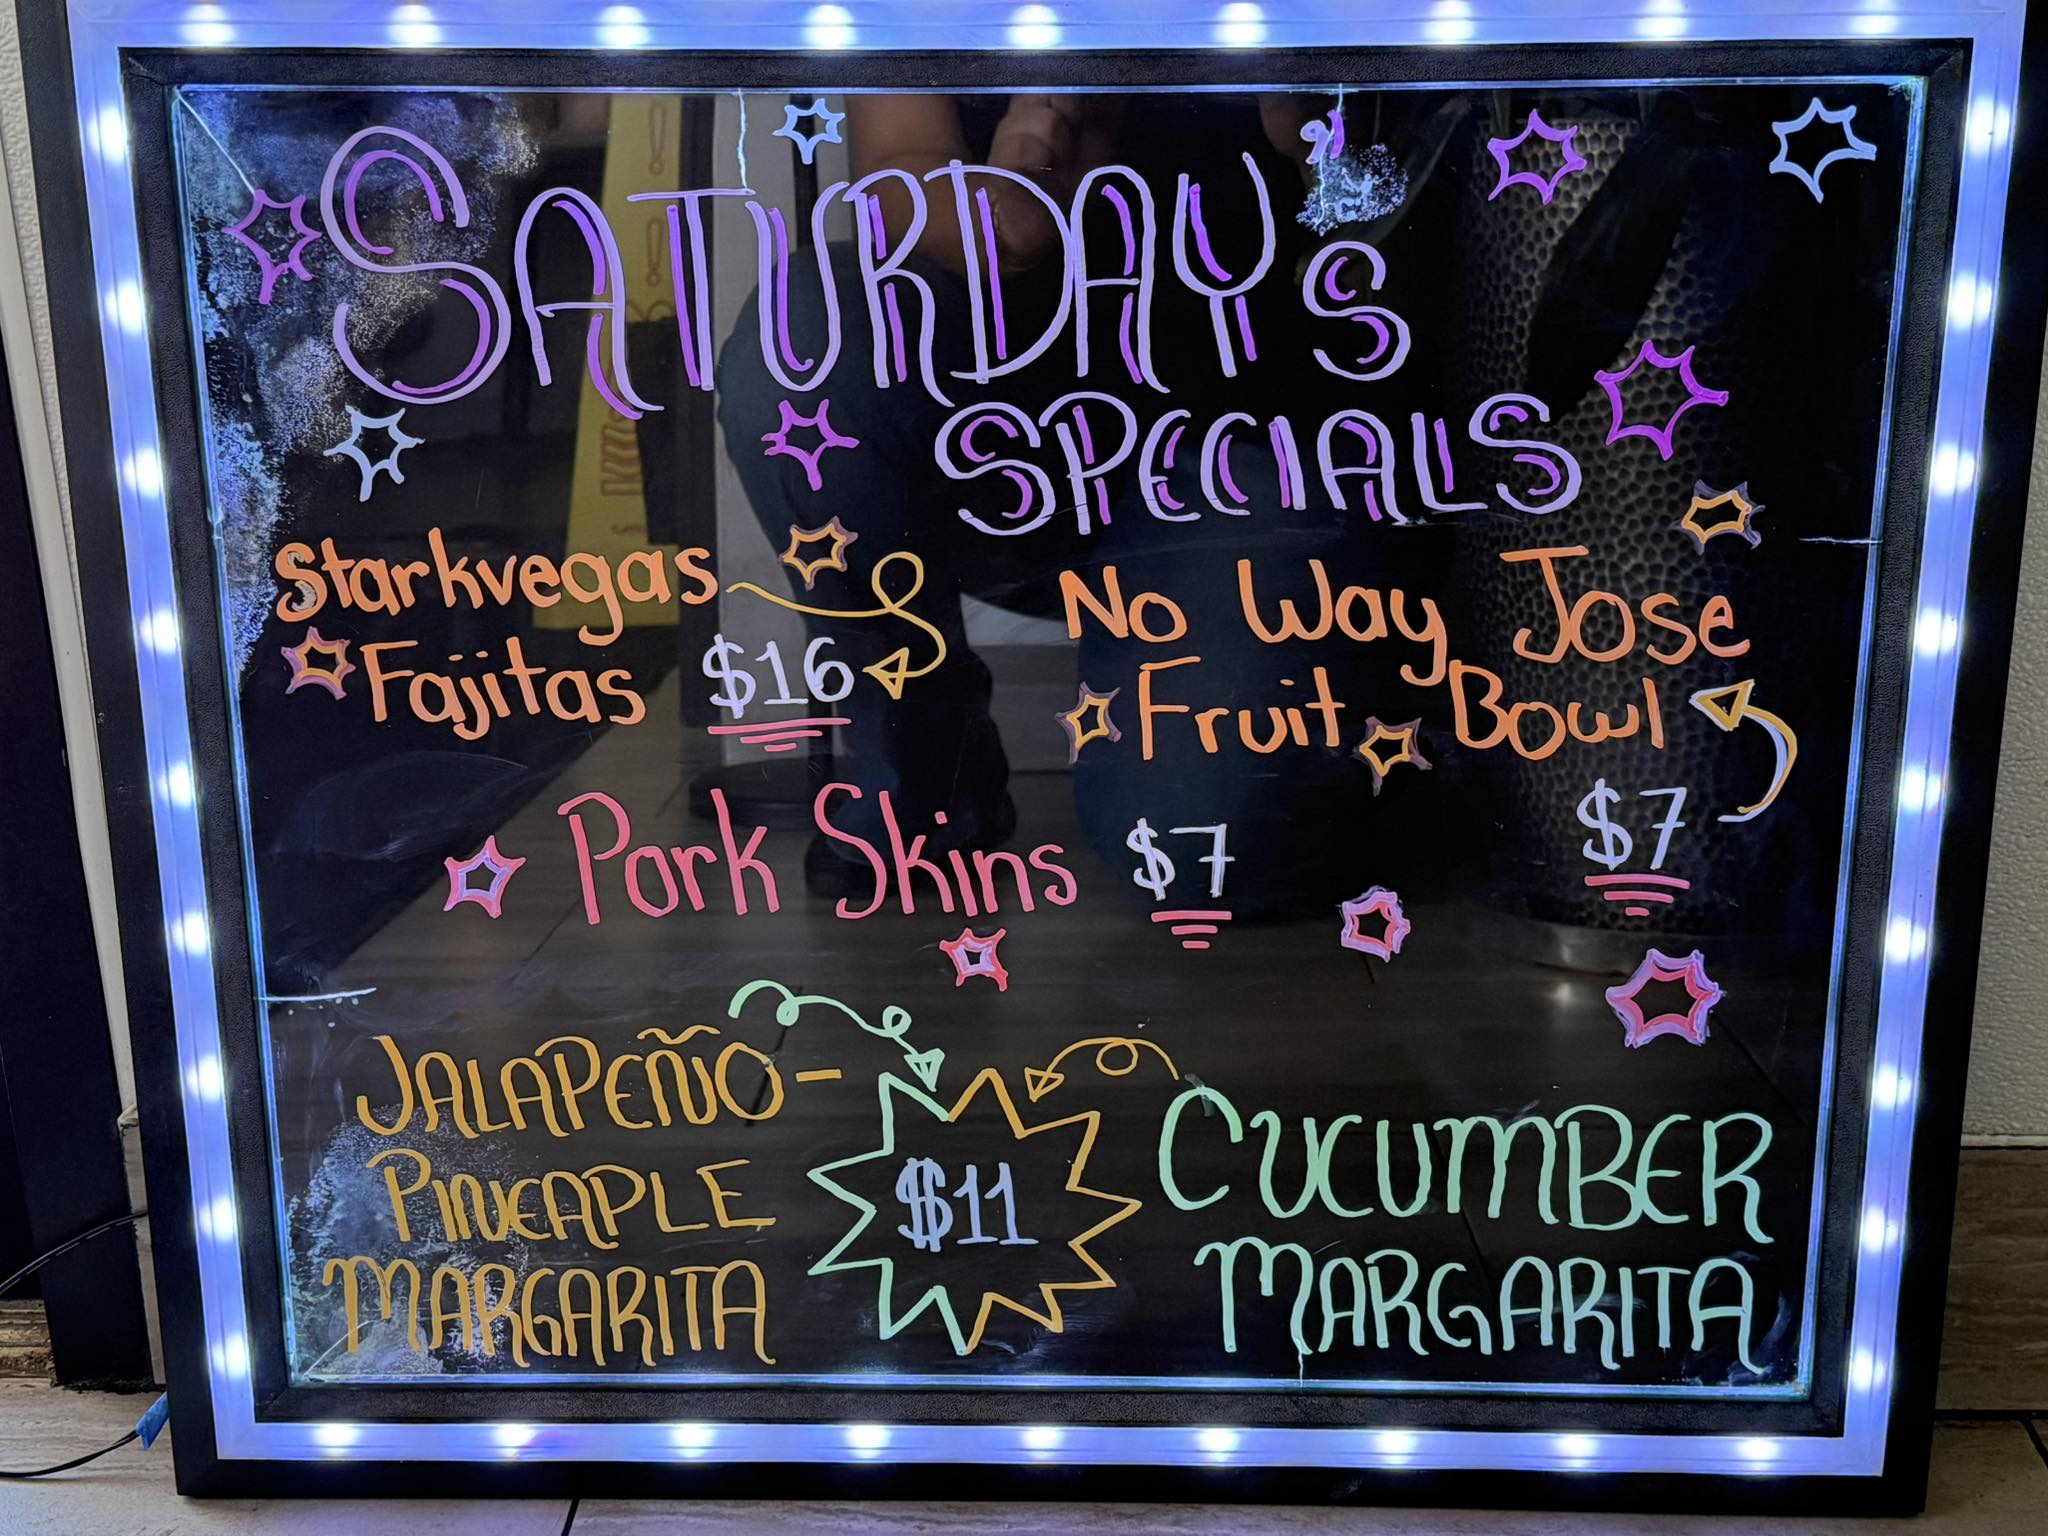 SATURDAY's
SPECIALS
Starkvegas
Fajitas $16
No Way Jose
Fruit Bowl
$7
Pork Skins $7
JALAPEÑO-
PINEAPLE
MARGARITA
$11
CUCUMBER
MARGARITA